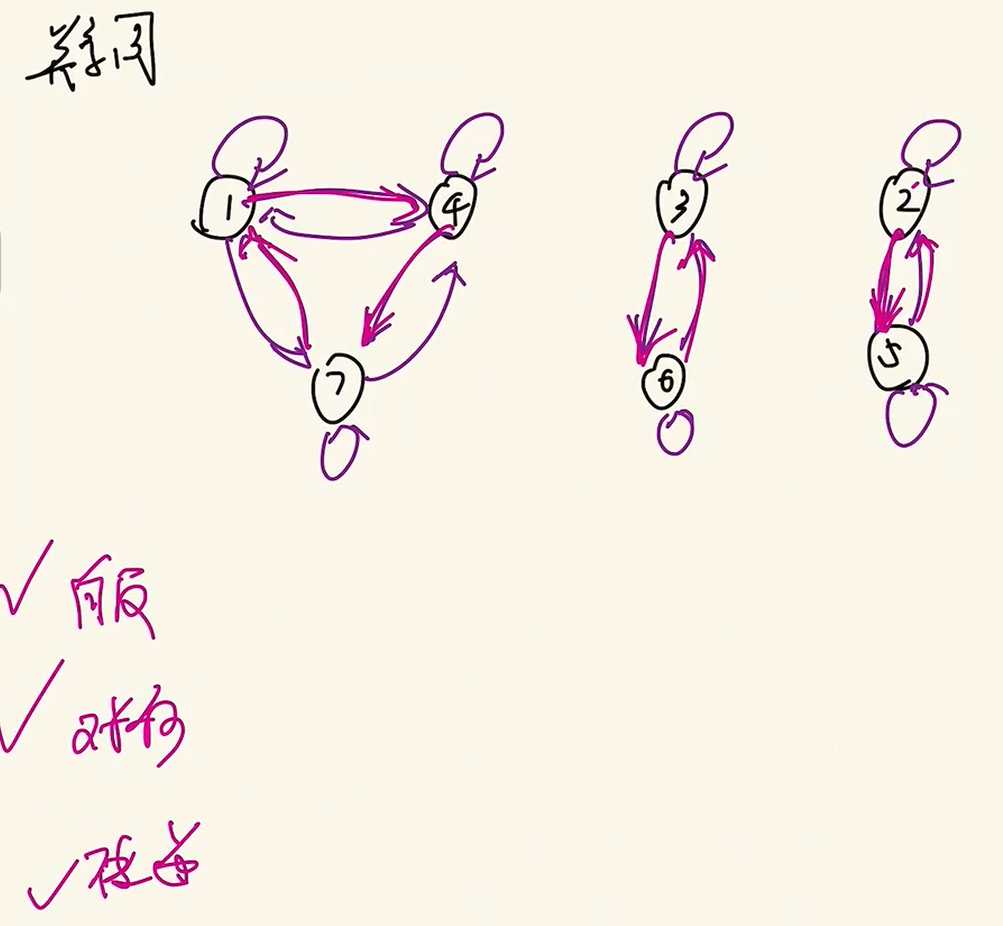 关系图
1 4 3 2
7 6 5
✓ 自反
✓ 对称
✓ 传递